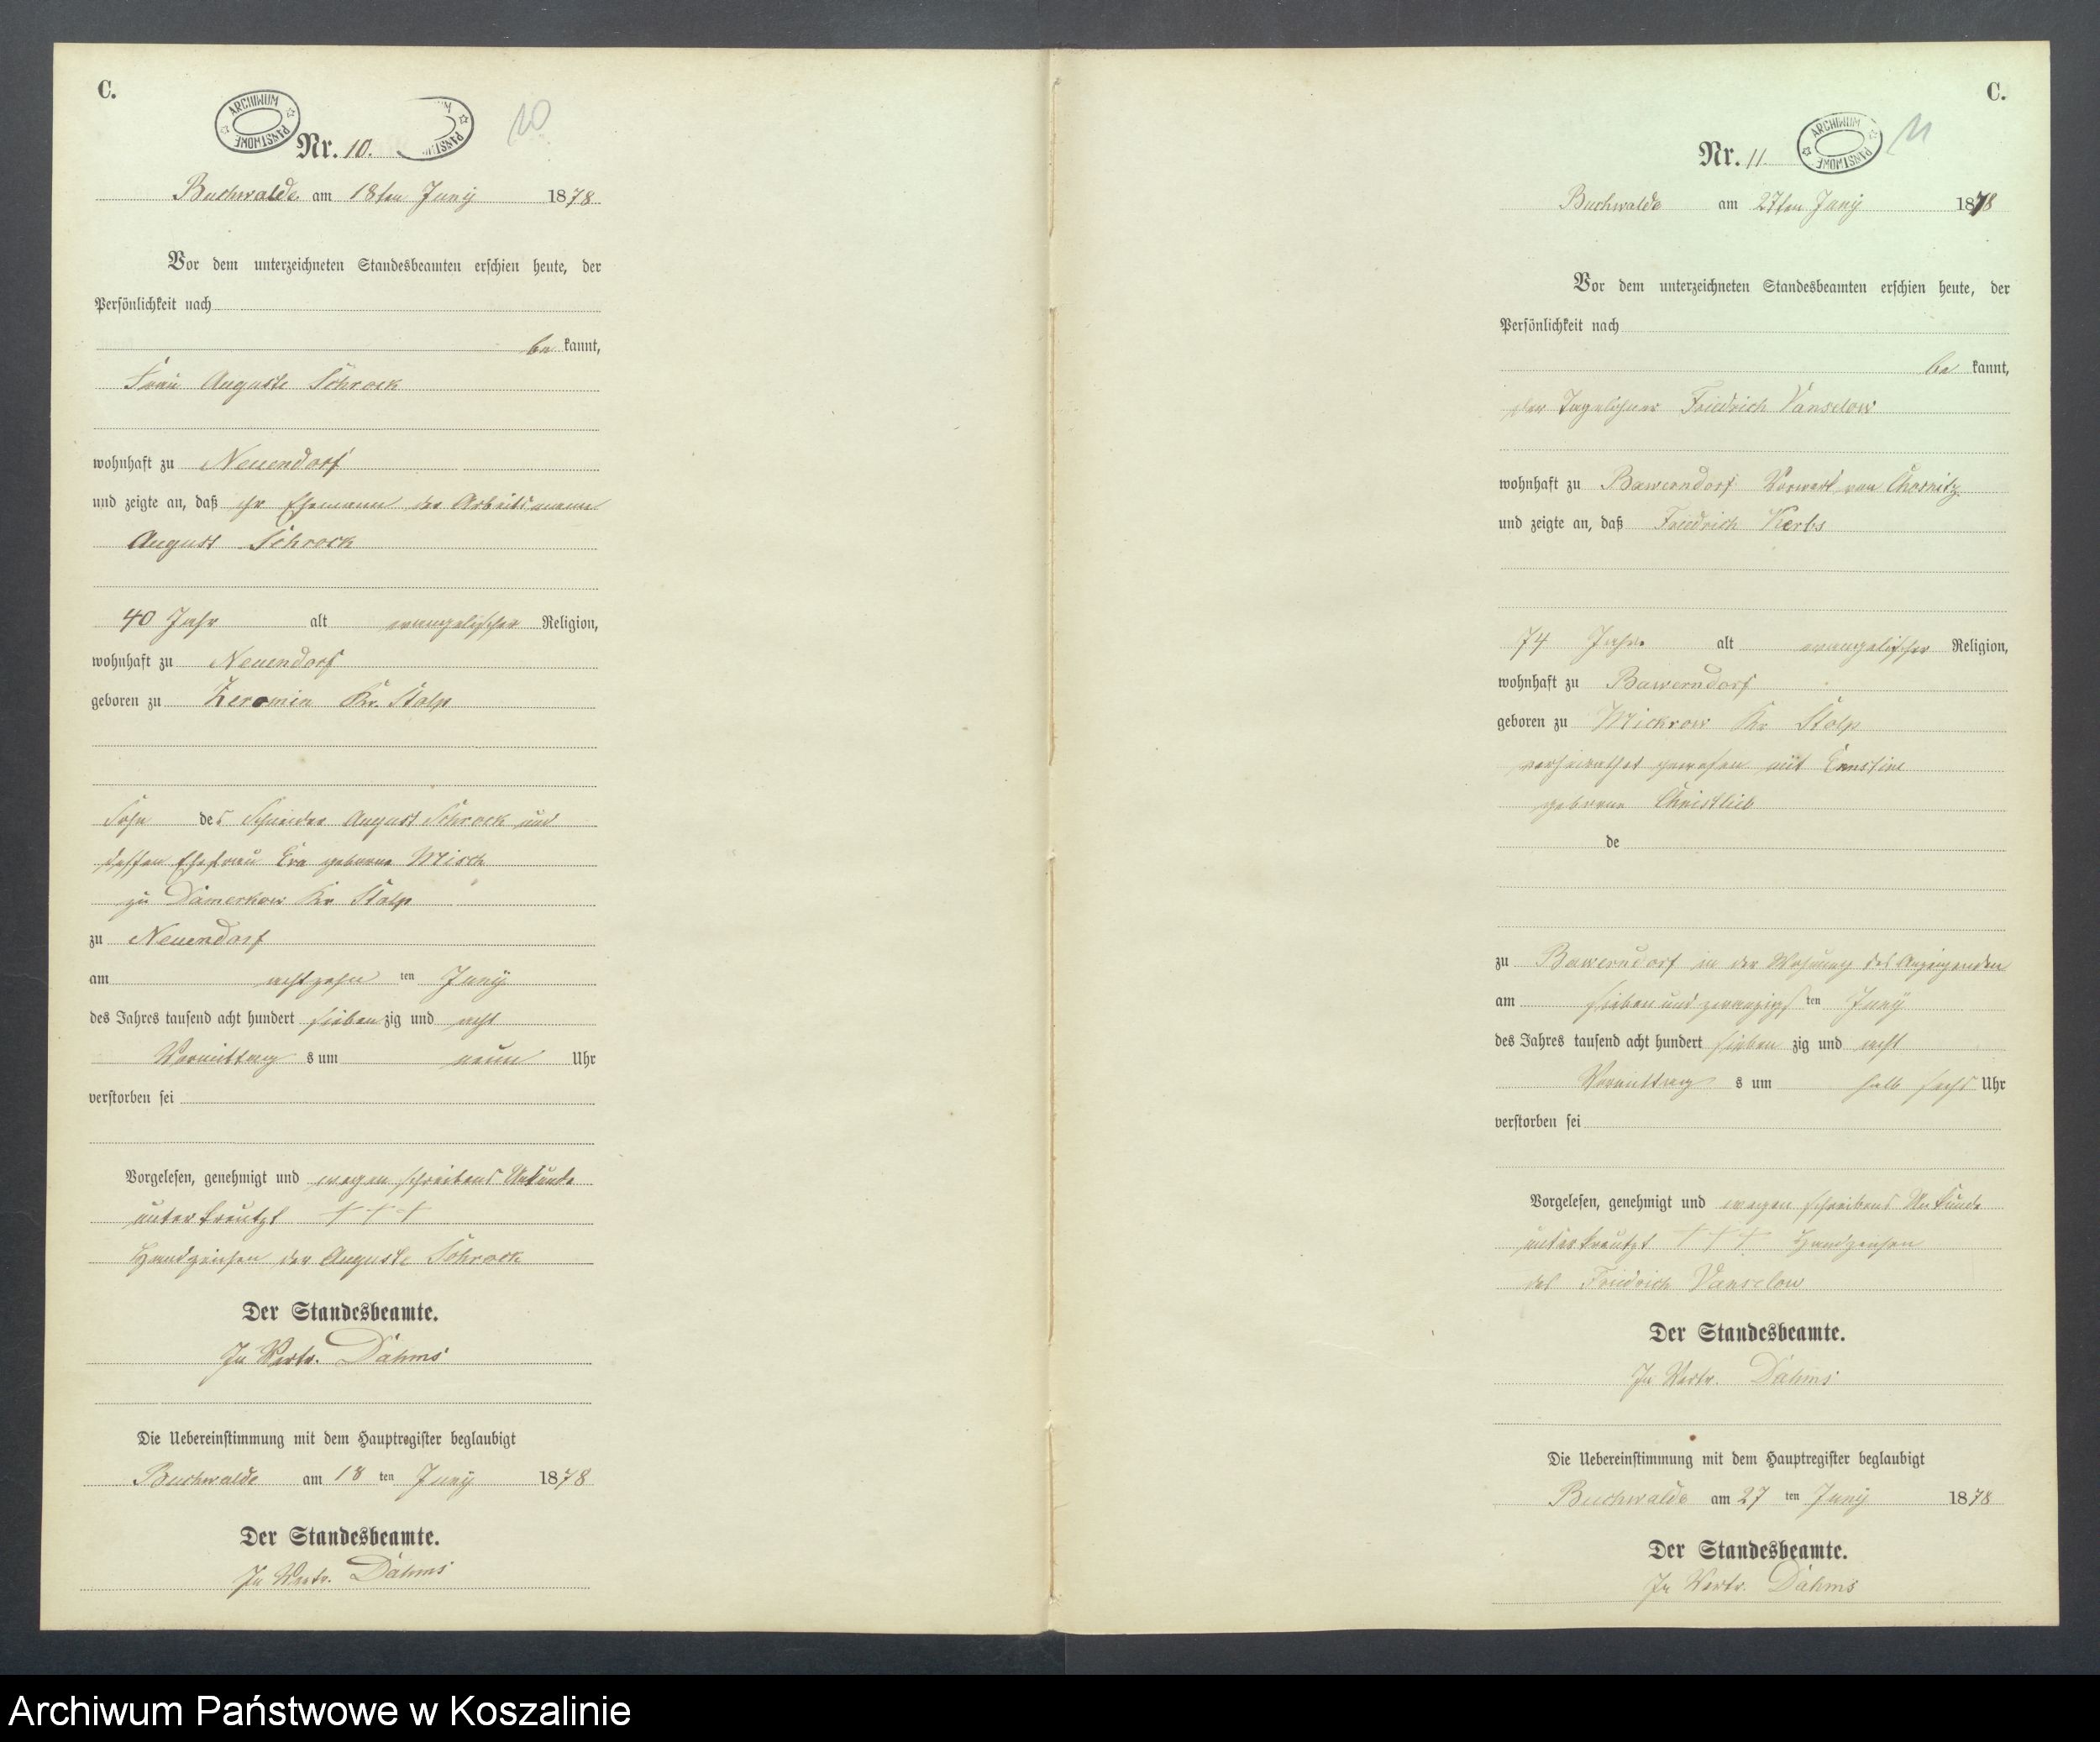 C.
ARCHIWUM PAŃSTWOWE
Nr. 10.
10
Buchwalde am 18ten Juny 1878
Vor dem unterzeichneten Standesbeamten erschien heute, der
Persönlichkeit nach
be kannt,
Frau Auguste Schrock
wohnhaft zu Neuendorf
und zeigte an, daß ihr Ehemann der Arbeitsmann
August Schrock
40 Jahr alt evangelischer Religion,
wohnhaft zu Neuendorf
geboren zu Zeromin Kr. Stolp
Sohn des Schneider August Schrock und
dessen Ehefrau Eva geborne Misch
zu Damerkow Kr Stolp
zu Neuendorf
am achtzehn ten Juny
des Jahres tausend acht hundert sieben zig und acht
Vormittag s um neun Uhr
verstorben sei
Vorgelesen, genehmigt und wegen schreibens Unkunde
unterkreutzt + + +
Handzeichen der Auguste Schrock
Der Standesbeamte.
In Vertr. Dahms
Die Uebereinstimmung mit dem Hauptregister beglaubigt
Buchwalde am 18 ten Juny 1878
Der Standesbeamte.
In Vertr. Dahms
C.
Nr. 11
ARCHIWUM PAŃSTWOWE
11
Buchwalde am 27ten Juny 1878
Vor dem unterzeichneten Standesbeamten erschien heute, der
Persönlichkeit nach
be kannt,
der Tagelöhner Friedrich Vanselow
wohnhaft zu Bawerndorf Vorwerk von Chosnitz
und zeigte an, daß Friedrich Kerbs
74 Jahr alt evangelischer Religion,
wohnhaft zu Bawerndorf
geboren zu Mickrow Kr Stolp
verheirathet gewesen mit Ernstine
geborne Christlieb
de
zu Bawerndorf in der Wohnung des Anzeigenden
am sieben und zwanzigs ten Juny
des Jahres tausend acht hundert sieben zig und acht
Vormittag s um halb sechs Uhr
verstorben sei
Vorgelesen, genehmigt und wegen schreibens Unkunde
unterkreutzt + + + Handzeichen
des Friedrich Vanselow
Der Standesbeamte.
In Vertr. Dahms
Die Uebereinstimmung mit dem Hauptregister beglaubigt
Buchwalde am 27 ten Juny 1878
Der Standesbeamte.
In Vertr. Dahms
Archiwum Państwowe w Koszalinie